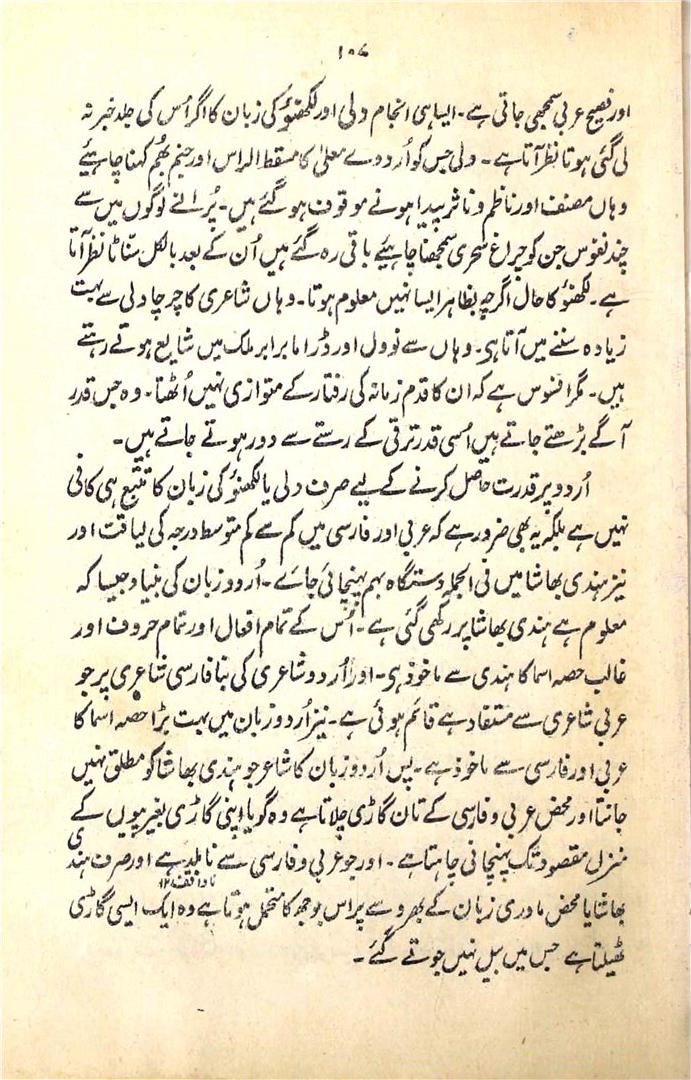 ۱۰۷
اور فصیح عربی سمجھی جاتی ہے۔ ایسا ہی انجام دلی اور لکھنؤ کی زبان کا اگر اُس کی جلد خبر نہ
لی گئی ہوتا نظر آتا ہے۔ دلی جس کو اُردوے معلیٰ کا مسقط الراس اور جنم بھُم کہنا چاہیئے
وہاں مصنف اور ناظم و ناثر پیدا ہونے موقوف ہو گئے ہیں۔ پُرانے لوگوں میں سے
چند نفوس جن کو چراغ سحری سمجھنا چاہیئے باقی رہ گئے ہیں اُن کے بعد بالکل سنّاٹا نظر آتا
ہے۔ لکھنؤ کا حال اگرچہ بظاہر ایسا نہیں معلوم ہوتا۔ وہاں شاعری کا چرچا دلی سے بہت
زیادہ سننے میں آتا ہی۔ وہاں سے نوول اور ڈراما برابر ملک میں شایع ہوتے رہتے
ہیں۔ مگر افسوس ہے کہ ان کا قدم زمانہ کی رفتار کے متوازی نہیں اُٹھتا۔ وہ جس قدر
آگے بڑھتے جاتے ہیں اُسی قدر ترقی کے رستے سے دور ہوتے جاتے ہیں۔
اُردو پر قدرت حاصل کرنے کے لیے صرف دلی یا لکھنؤ کی زبان کا تتبّع ہی کافی
نہیں ہے بلکہ یہ بھی ضرور ہے کہ عربی اور فارسی میں کم سے کم متوسط درجہ کی لیاقت اور
نیز ہندی بھاشا میں فی الجملہ دستگاہ بہم پہنچائی جاے۔ اُردو زبان کی بنیاد جیسا کہ
معلوم ہے ہندی بھاشا پر رکھی گئی ہے۔ اُس کے تمام افعال اور تمام حروف اور
غالب حصہ اسما کا ہندی سے ماخوذ ہی۔ اور اُردو شاعری کی بنا فارسی شاعری پر جو
عربی شاعری سے مستفاد ہے قائم ہوئی ہے۔ نیز اُردو زبان میں بہت بڑا حصہ اسما کا
عربی اور فارسی سے ماخوذ ہے۔ پس اُردو زبان کا شاعر جو ہندی بھاشا کو مطلق نہیں
جانتا اور محض عربی و فارسی کے تان گاڑی چلاتا ہے وہ گویا اپنی گاڑی بغیر پہیوں کے
منزل مقصود تک پہنچانی چاہتا ہے۔ اور جو عربی و فارسی سے نابلد ہے اور صرف ہندی
ناواقف ۱۲
بھاشا یا محض مادری زبان کے بھروسے پر اس بوجھ کا متحمل ہوتا ہے وہ ایک ایسی گاڑی
ٹھیلتا ہے جس میں بیل نہیں جوتے گئے۔